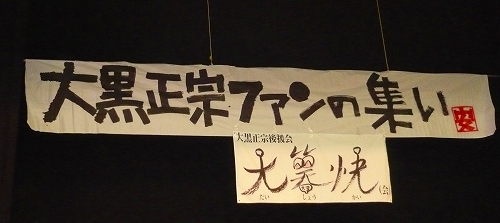 大黒正宗ファンの集い
大黒正宗後援会
大 快 (会)
だい しょう かい